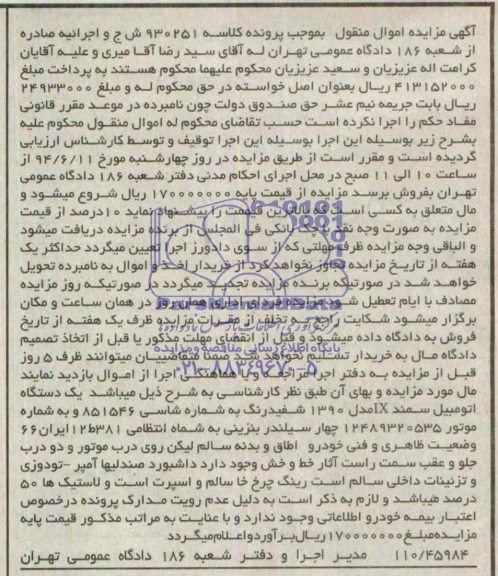 آگهی مزایده اموال منقول بموجب پرونده کلاسه ۹۳۰۲۵۱ ش ج و اجرائیه صادره
از شعبه ۱۸۶ دادگاه عمومی تهران له آقای سید رضا آقا میری و علیه آقایان
کرامت اله عزیزیان و سعید عزیزیان محکوم علیهما محکوم هستند به پرداخت مبلغ
۴۱۳۱۵۲۰۰۰ ریال بعنوان اصل خواسته در حق محکوم له و مبلغ ۲۴۹۳۳۰۰۰
ریال بابت جریمه نیم عشر حق صندوق دولت چون نامبرده در موعد مقرر قانونی
مفاد حکم را اجرا نکرده است حسب تقاضای محکوم له اموال منقول محکوم علیه
بشرح زیر بوسیله این اجرا بوسیله این اجرا توقیف و توسط کارشناس ارزیابی
گردیده است و مقرر است از طریق مزایده در روز چهارشنبه مورخ ۹۴/۶/۱۱ از
ساعت ۱۰ الی ۱۱ صبح در محل اجرای احکام مدنی دفتر شعبه ۱۸۶ دادگاه عمومی
تهران بفروش برسد مزایده از قیمت پایه ۱۷۰۰۰۰۰۰۰ ریال شروع میشود و
مال متعلق به کسی است که بالاترین قیمت را پیشنهاد نماید ۱۰درصد از قیمت
مزایده به صورت وجه نقد یا چک بانکی فی المجلس از برنده مزایده دریافت میشود
و الباقی وجه مزایده ظرف مهلتی که از سوی دادورز اجرا تعیین میگردد حداکثر یک
هفته از تاریخ مزایده تجاوز نخواهد کرد از خریدار اخذ و اموال به نامبرده تحویل
خواهد شد در صورتیکه برنده مزایده تجدید میگردد در صورتیکه روز مزایده
مصادف با ایام تعطیل شود مزایده فردای اداری همان روز در همان ساعت و مکان
برگزار میشود شکایت راجع به تخلف از مقررات مزایده ظرف یک هفته از تاریخ
فروش به دادگاه داده میشود و قبل از انقضای مهلت مذکور یا قبل از اتخاذ تصمیم
دادگاه مال به خریدار تسلیم نخواهد شد ضمنا متقاضیان میتوانند ظرف ۵ روز
قبل از مزایده به دفتر اجرا مراجعه و با هماهنگی اجرا از اموال بازدید نمایند
مال مورد مزایده و بهای آن طبق نظر کارشناسی به شرح ذیل میباشد یک دستگاه
اتومبیل سمند LXمدل ۱۳۹۰ سفیدرنگ به شماره شاسی ۸۵۱۵۴۶ و به شماره
موتور ۱۲۴۸۹۳۲۰۵۳۵ چهار سیلندر بنزینی به شماه انتظامی ۳۸۱ط۱۲ایران۶۶
وضعیت ظاهری و فنی خودرو اطاق و بدنه سالم لیکن روی درب موتور و دو درب
جلو و عقب سمت راست آثار خط و خش وجود دارد داشبورد صندلیها آمپر -تودوزی
و تزئینات داخلی سالم است رینگ چرخ خا سالم و اسپرت است و لاستیک ها ۵۰
درصد میباشد و لازم به ذکر است به دلیل عدم رویت مدارک پرونده درخصوص
اعتبار بیمه خودرو اطلاعاتی وجود ندارد و با عنایت به مراتب مذکور قیمت پایه
مزایده مبلغ ۱۷۰۰۰۰۰۰۰ ریال برآورد و اعلام میگردد
۱۱۰/۴۵۹۸۴ مدیر اجرا و دفتر شعبه ۱۸۶ دادگاه عمومی تهران
پایگاه اطلاع رسانی مناقصه و مزایده
۰۲۱-۸۸۳۴۹۶۷۰-۵